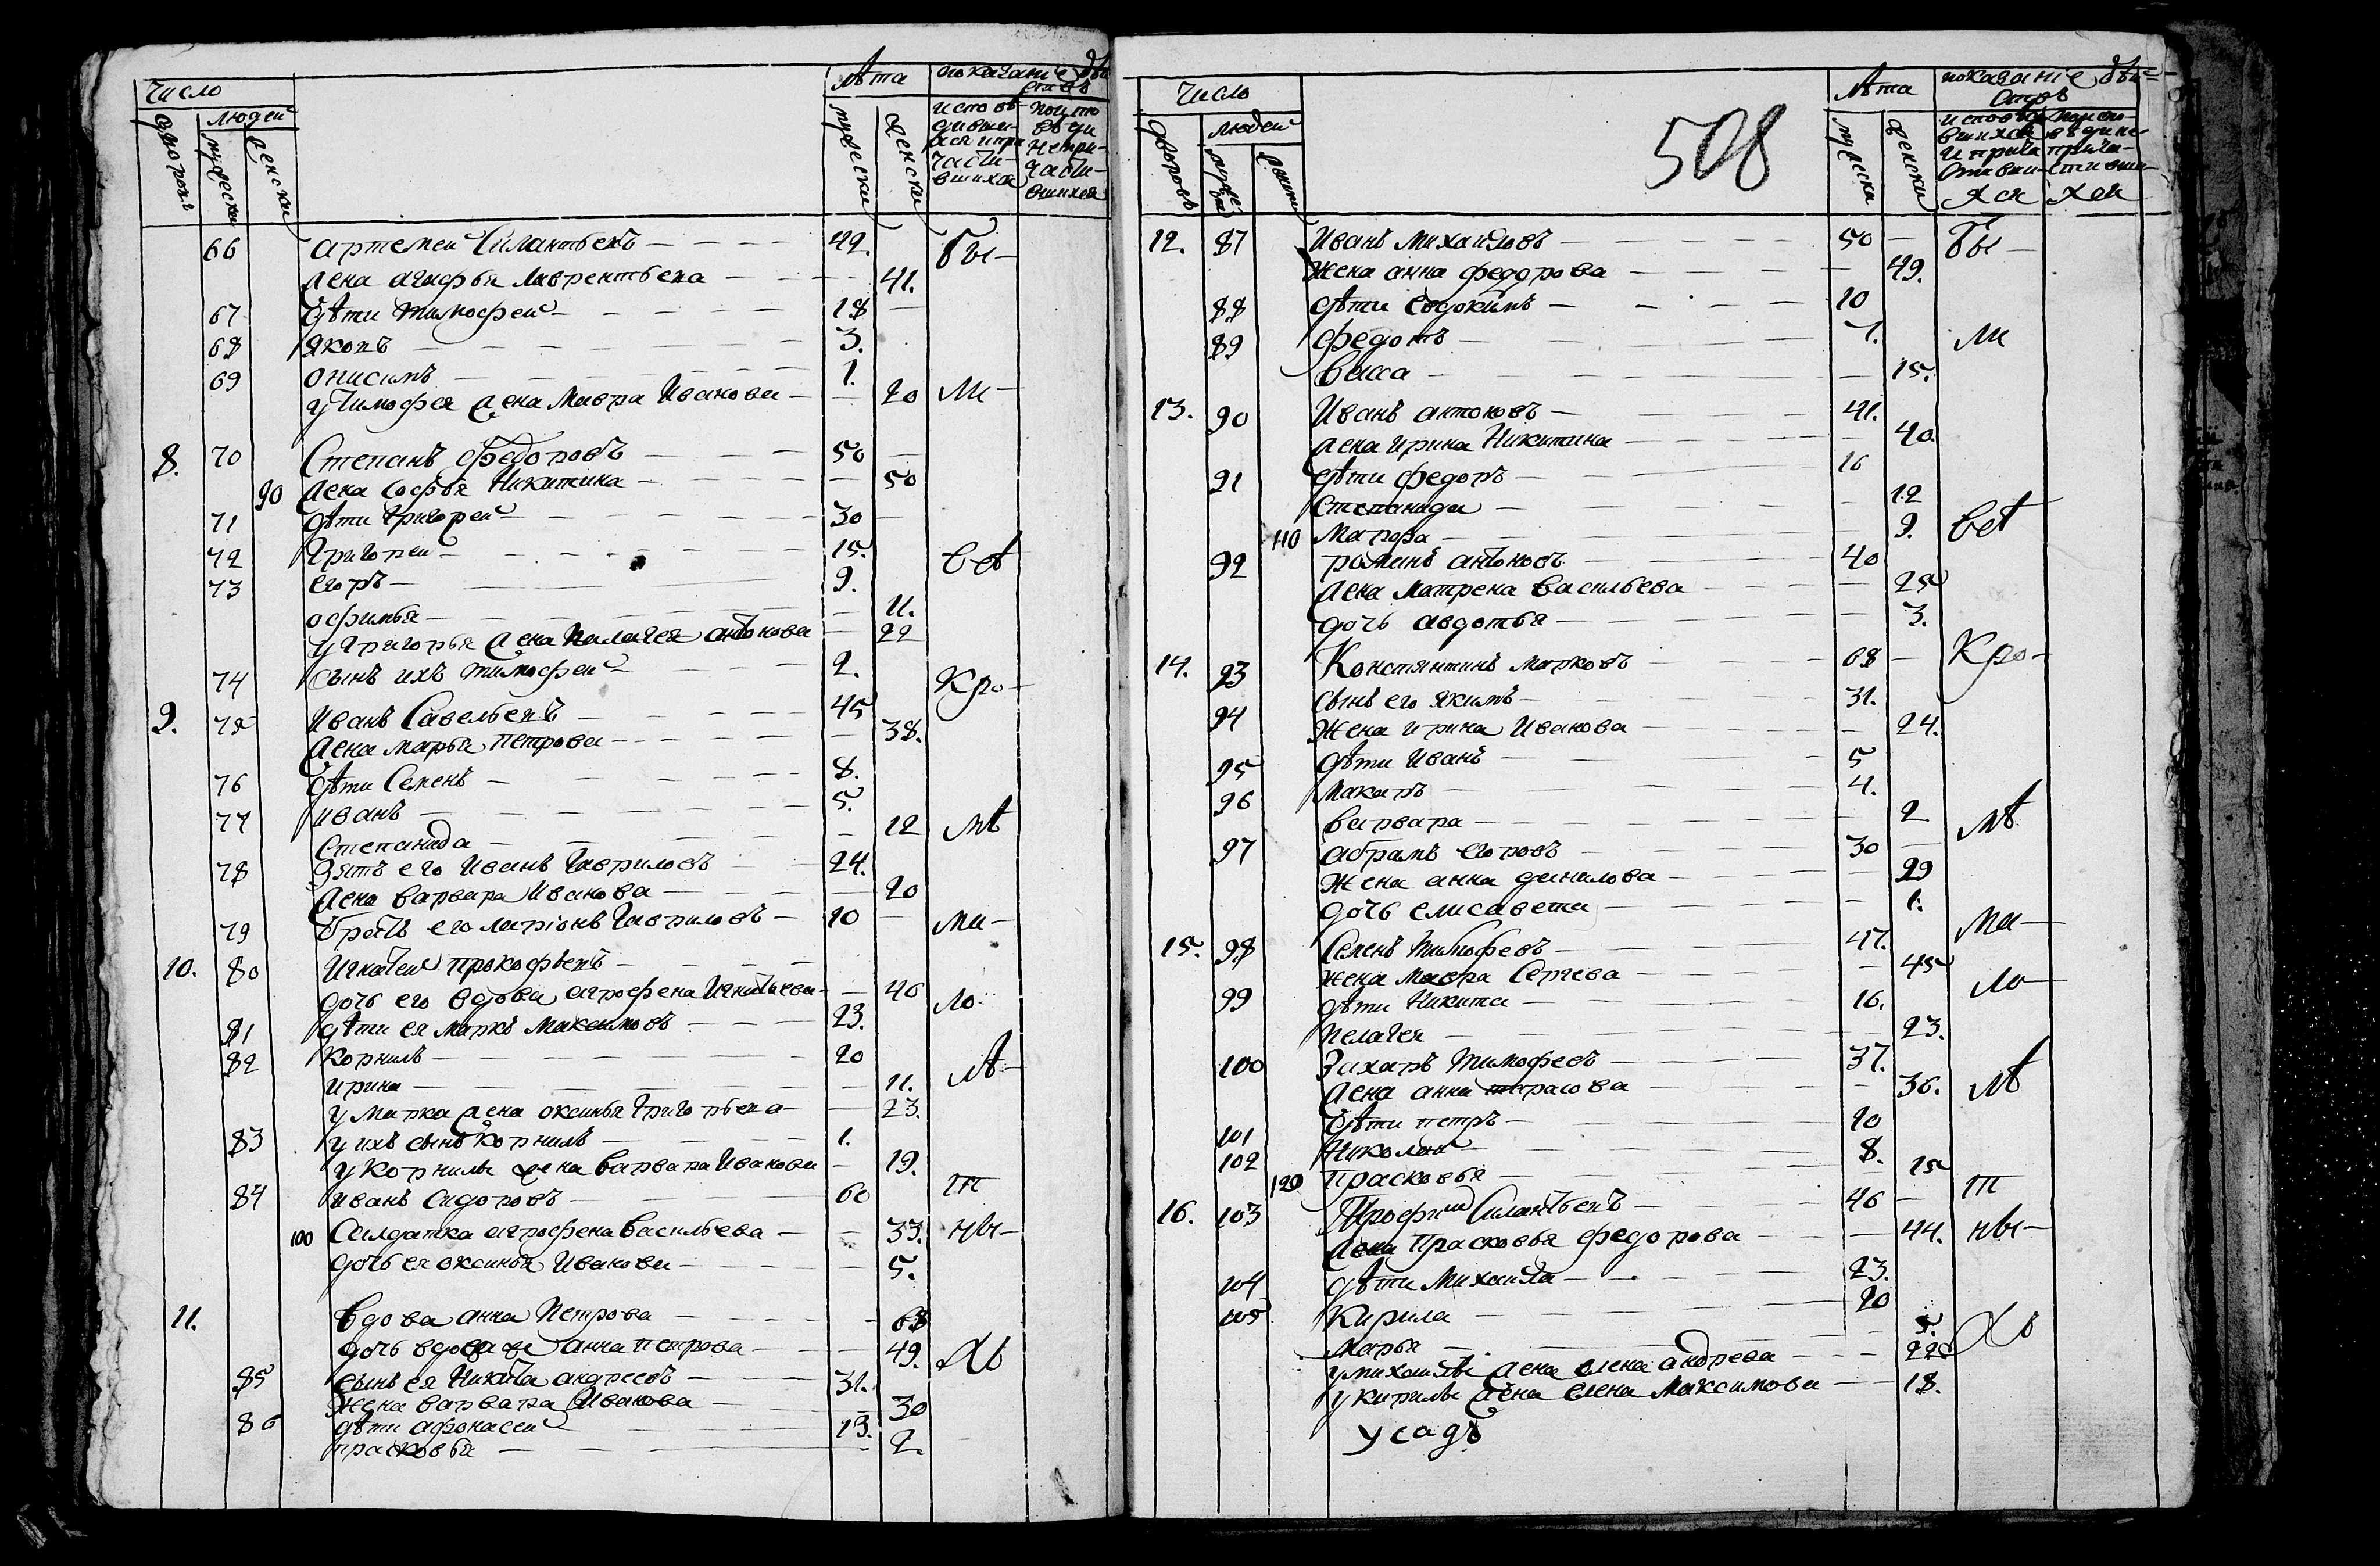 Число
Лѣта
показаніе дѣи
ствъ
людей
дворовъ
мужески
женски
мужески
женски
исповѣ-
дивши-
хся и при
части-
вшихся
66 артемей Силантьевъ 42. Бы-
жена агафья лаврентьева 41.
67 дѣти тимофей 18
68 яковъ 3.
69 онисимъ 1.
у тимофея жена мавра Иванова 20 ли-
8. 70 Степанъ Федоровъ 50
90 жена софья Никитина 50
71 дѣти григорей 30
72 григореи 15. всѣ
73 егоръ 9.
офимья 11.
у григорья жена палагея антонова 22
74 сынъ ихъ тимофей 2. Кро-
9. 75 Иванъ Савельевъ 45
жена марья петрова 38.
76 дѣти Семенъ 8.
77 иванъ 5.
степанида 12 мѣ
78 зять его Иванъ Гавриловъ 24.
жена варвара Иванова 20
79 братъ его ларіонъ Гавриловъ 10 ма-
10. 80 Игнатей прокофьевъ
дочь его вдова агрофена Игнатьева 46 ло-
81 дѣти ея маркъ максимовъ 23.
82 корнилъ 20
ирина 11. лѣ-
у марка жена оксинья григорьева 23.
83 у ихъ сынъ корнилъ 1.
у корнилы жена варвара Иванова 19.
84 иванъ сидоровъ 60 т
100 Салдатка агрофена васильева 33. ны-
дочь ея оксинья Иванова 5.
11. вдова анна Петрова 68
дочь вдова же анна петрова 49. хъ
85 сынъ ея Никита андреевъ 31.
жена варвара Иванова 30
86 дѣти афонасей 13.
прасковья 2.
Число
508
Лѣта
показаніе дѣи=
ствъ
людей
дворовъ
мужески
женски
12. 87 Иванъ михаиловъ 50 Бы-
жена анна федорова 49.
88 дѣти евдокимъ 10
89 федотъ 7. ли
васса 15.
13. 90 Иванъ антоновъ 41.
жена ирина Никитина 40.
91 дѣти федоръ 16
степанида 12
110 марфа 9. всѣ
92 антоновъ 40
жена матрена васильева 25
дочь авдотья 3.
14. 93 Констянтинъ марковъ 68 Кро-
94 сынъ его якимъ 31.
жена ирина Иванова 24.
95 дѣти Иванъ 5
96 макаръ 4.
варвара 2 мѣ
97 абрамъ егоровъ 30
жена анна данилова 29
дочь елисавета 1.
15. 98 Семенъ тимофеевъ 47. ма-
жена мавра Сергева 45
99 дѣти Никита 16. ло-
пелагея 23.
100 Захаръ тимофеевъ 37.
жена анна 36. лѣ
101 дѣти петръ 20
102 Николай 8.
120 прасковья 15
16. 103 Трофим Силантьевъ 46 т
жена Прасковья федорова 44. ны-
104 дѣти михаила 23.
105 Кирила 20
марья 5. хъ
у михаилы жена елена андрева 22
у кирилы жена елена максимова 18.
усадъ